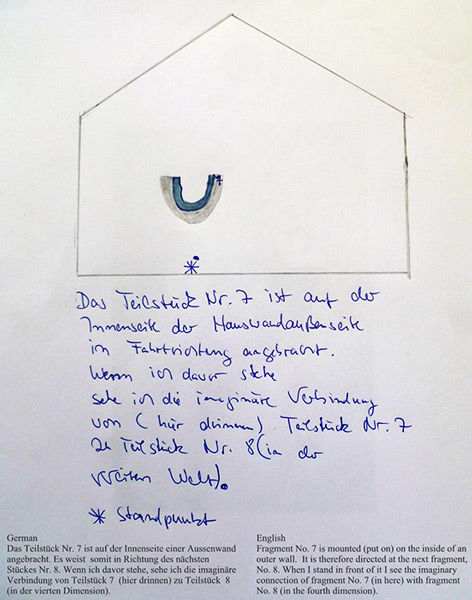 7
*
Das Teilstück Nr. 7 ist auf der
Innenseite der Hauswandaußenseite
in Fahrtrichtung angebracht.
Wenn ich davor stehe
sehe ich die imaginäre Verbindung
von (hier drinnen) Teilstück Nr. 7
zu Teilstück Nr. 8 (in der
weiten Welt).
* Standpunkt
German
Das Teilstück Nr. 7 ist auf der Innenseite einer Aussenwand
angebracht. Es weist somit in Richtung des nächsten
Stückes Nr. 8. Wenn ich davor stehe, sehe ich die imaginäre
Verbindung von Teilstück 7 (hier drinnen) zu Teilstück 8
(in der vierten Dimension).
English
Fragment No. 7 is mounted (put on) on the inside of an
outer wall. It is therefore directed at the next fragment,
No. 8. When I stand in front of it I see the imaginary
connection of fragment No. 7 (in here) with fragment
No. 8 (in the fourth dimension).